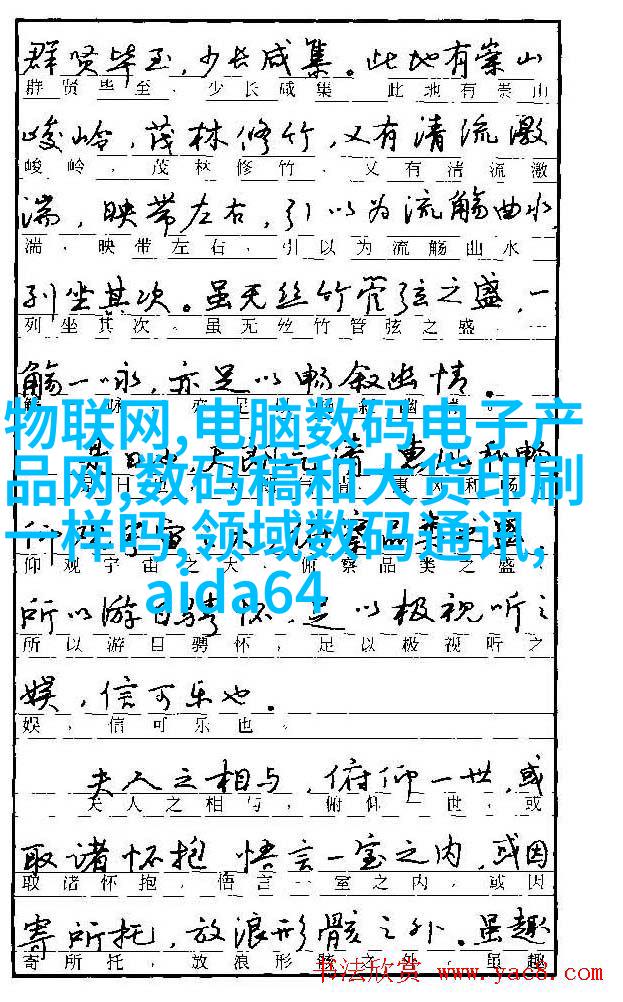 群贤毕至，少长咸集。此地有崇山
群贤毕至，少长咸集 此地有崇山
峻岭，茂林修竹，又有清流激
峻岭，茂林修竹，又有清流激
湍，映带左右，引以为流觞曲水
湍，映带左右，引以为流觞曲水
列坐其次。虽无丝竹管弦之盛，一
列坐其次。虽无丝竹管弦之盛，一
觞一咏，亦足以畅叙幽情。
物联网,电脑数码电子产
品网,数码稿和大货印刷
一样吗,领域数码通讯,
aida64
仰观宇宙之大，俯察品类之盛
所以游目骋怀，足以极视听之
所以游目骋怀，足以极视听之
娱，信可乐也。
娱，信可乐也。
夫人之相与，俯仰一世，或
夫人之相与，俯仰一世，或
取诸怀抱 悟言一室之内，或因
取诸怀抱，悟言一室之内，或因
寄所托，放浪形骸之外。虽趣
寄所托，放浪形骸之外。虽趣
书法欣赏 www.yac8.com